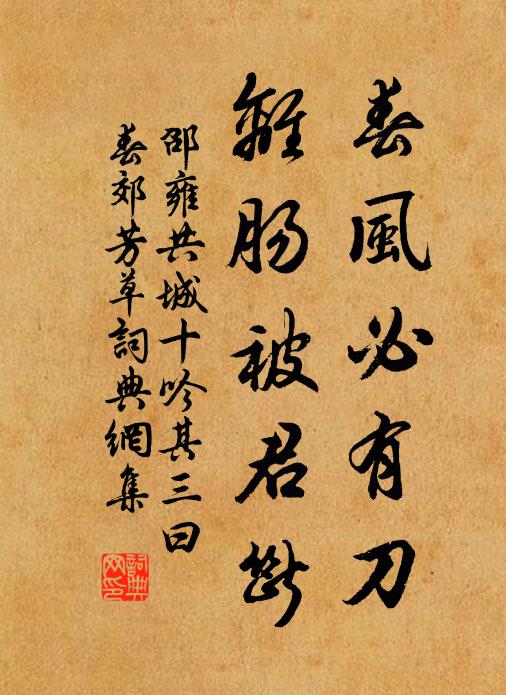 春風必有刀
離腸被君斷
邵雍共城十吟其三曰
春郊芳草詞典網集
詞典网印